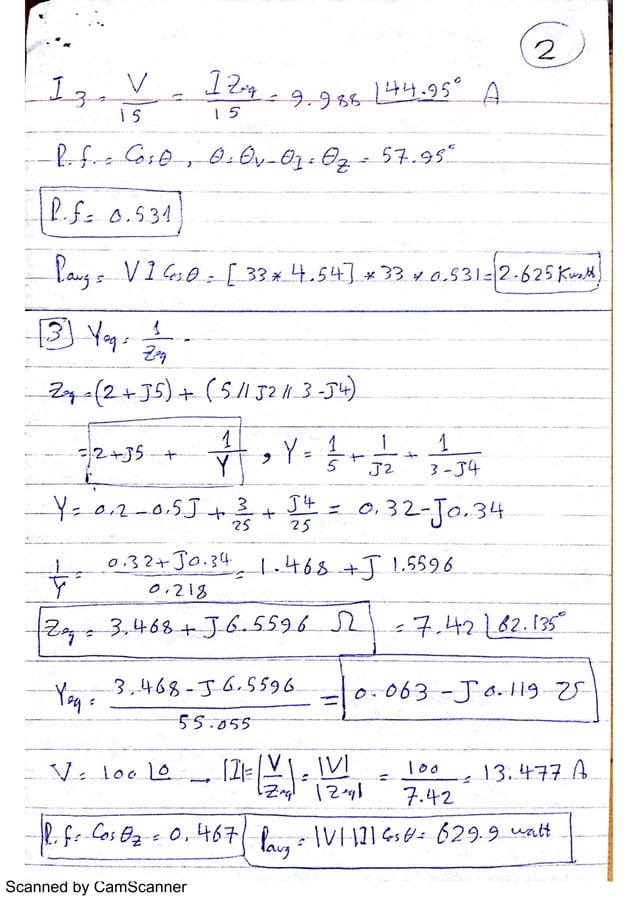 2
I3 = V/15 = I Zeq/15 = 9.988 ∠44.95° A
P.f. = Cosθ , θ = θv - θI = θZ = 57.95°
P.f = 0.531
Pavg = V I Cosθ = [33 * 4.54] * 33 * 0.531 = 2.625 Kwatt
[3] Yeq = 1/Zeq .
Zeq = (2 + J5) + (5 // J2 // 3 - J4)
= 2 + J5 + 1/Y , Y = 1/5 + 1/J2 + 1/(3 - J4)
Y = 0.2 - 0.5J + 3/25 + J4/25 = 0.32 - J0.34
1/Y = (0.32 + J0.34)/0.218 = 1.468 + J 1.5596
Zeq = 3.468 + J 6.5596 Ω = 7.42 ∠62.135°
Yeq = (3.468 - J 6.5596)/55.055 = 0.063 - J 0.119 ℧
V = 100 ∠0 → |I| = |V/Zeq| = |V|/|Zeq| = 100/7.42 = 13.477 A
P.f = Cos θZ = 0.467 Pavg = |V| |I| Cosθ = 629.9 watt
Scanned by CamScanner